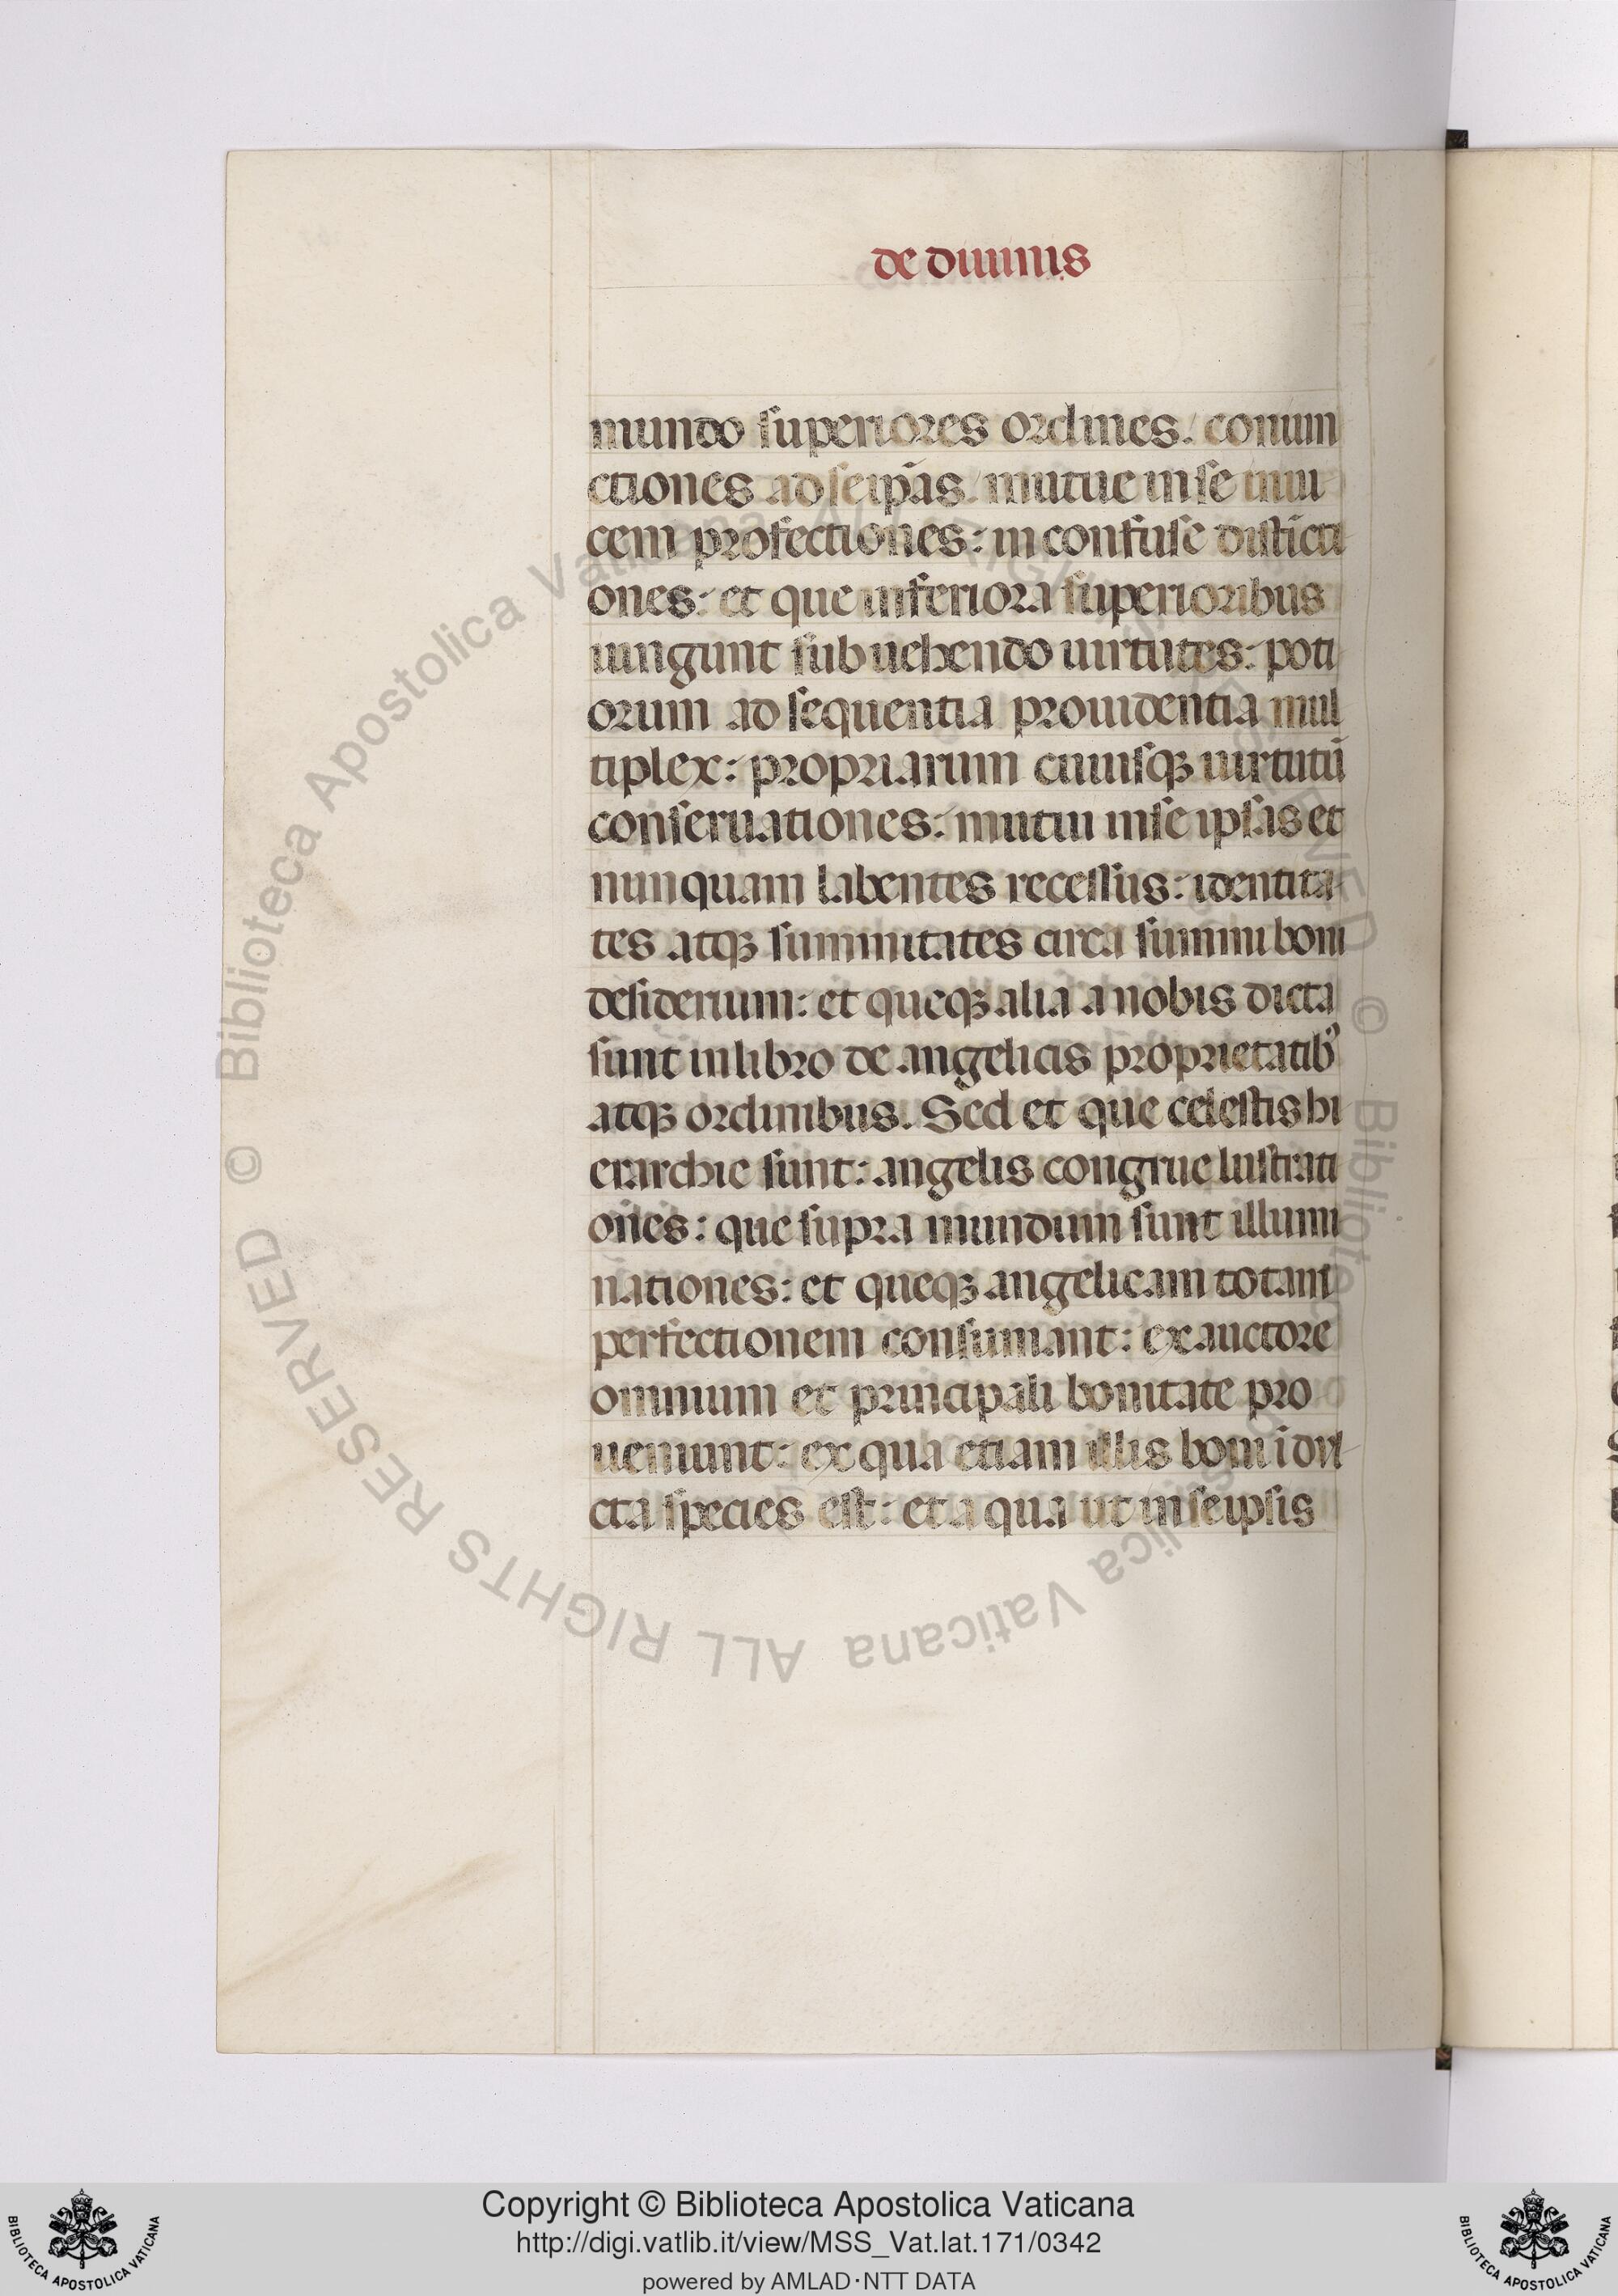 de diuinis
mundo superiores ordines: coniun
ctiones ad seip̃as: mutue in se inui
cem profectiones: in confuse distĩcti
ones: et que inferiora superioribus
iungunt sub uehendo uirtutes: poti
orum ad sequentia prouidentia mul
tiplex: propriarum cuiusqꝫ uirtutũ
conseruationes: mutui in se ipsas et
nunquam labentes recessus: identita
tes atqꝫ summitates circa summi boni
desiderium: et queqꝫ alia a nobis dicta
sunt in libro de angelicis proprietatibꝰ
atqꝫ ordinibus. Sed et que celestis hi
erarchie sunt: angelis congrue lustrati
ones: que supra mundum sunt illumi
nationes: et queqꝫ angelicam totam
perfectionem consumant: ex auctore
omnium et principali bonitate pro
ueniunt: ex qua etiam illis boni ĩdul
cta species est: et a qua ut in seipsis
© Biblioteca Apostolica Vaticana ALL RIGHTS RESERVED
© Biblioteca Apostolica Vaticana ALL RIGHTS RESERVED
Copyright © Biblioteca Apostolica Vaticana
http://digi.vatlib.it/view/MSS_Vat.lat.171/0342
powered by AMLAD·NTT DATA
BIBLIOTECA APOSTOLICA VATICANA
BIBLIOTECA APOSTOLICA VATICANA